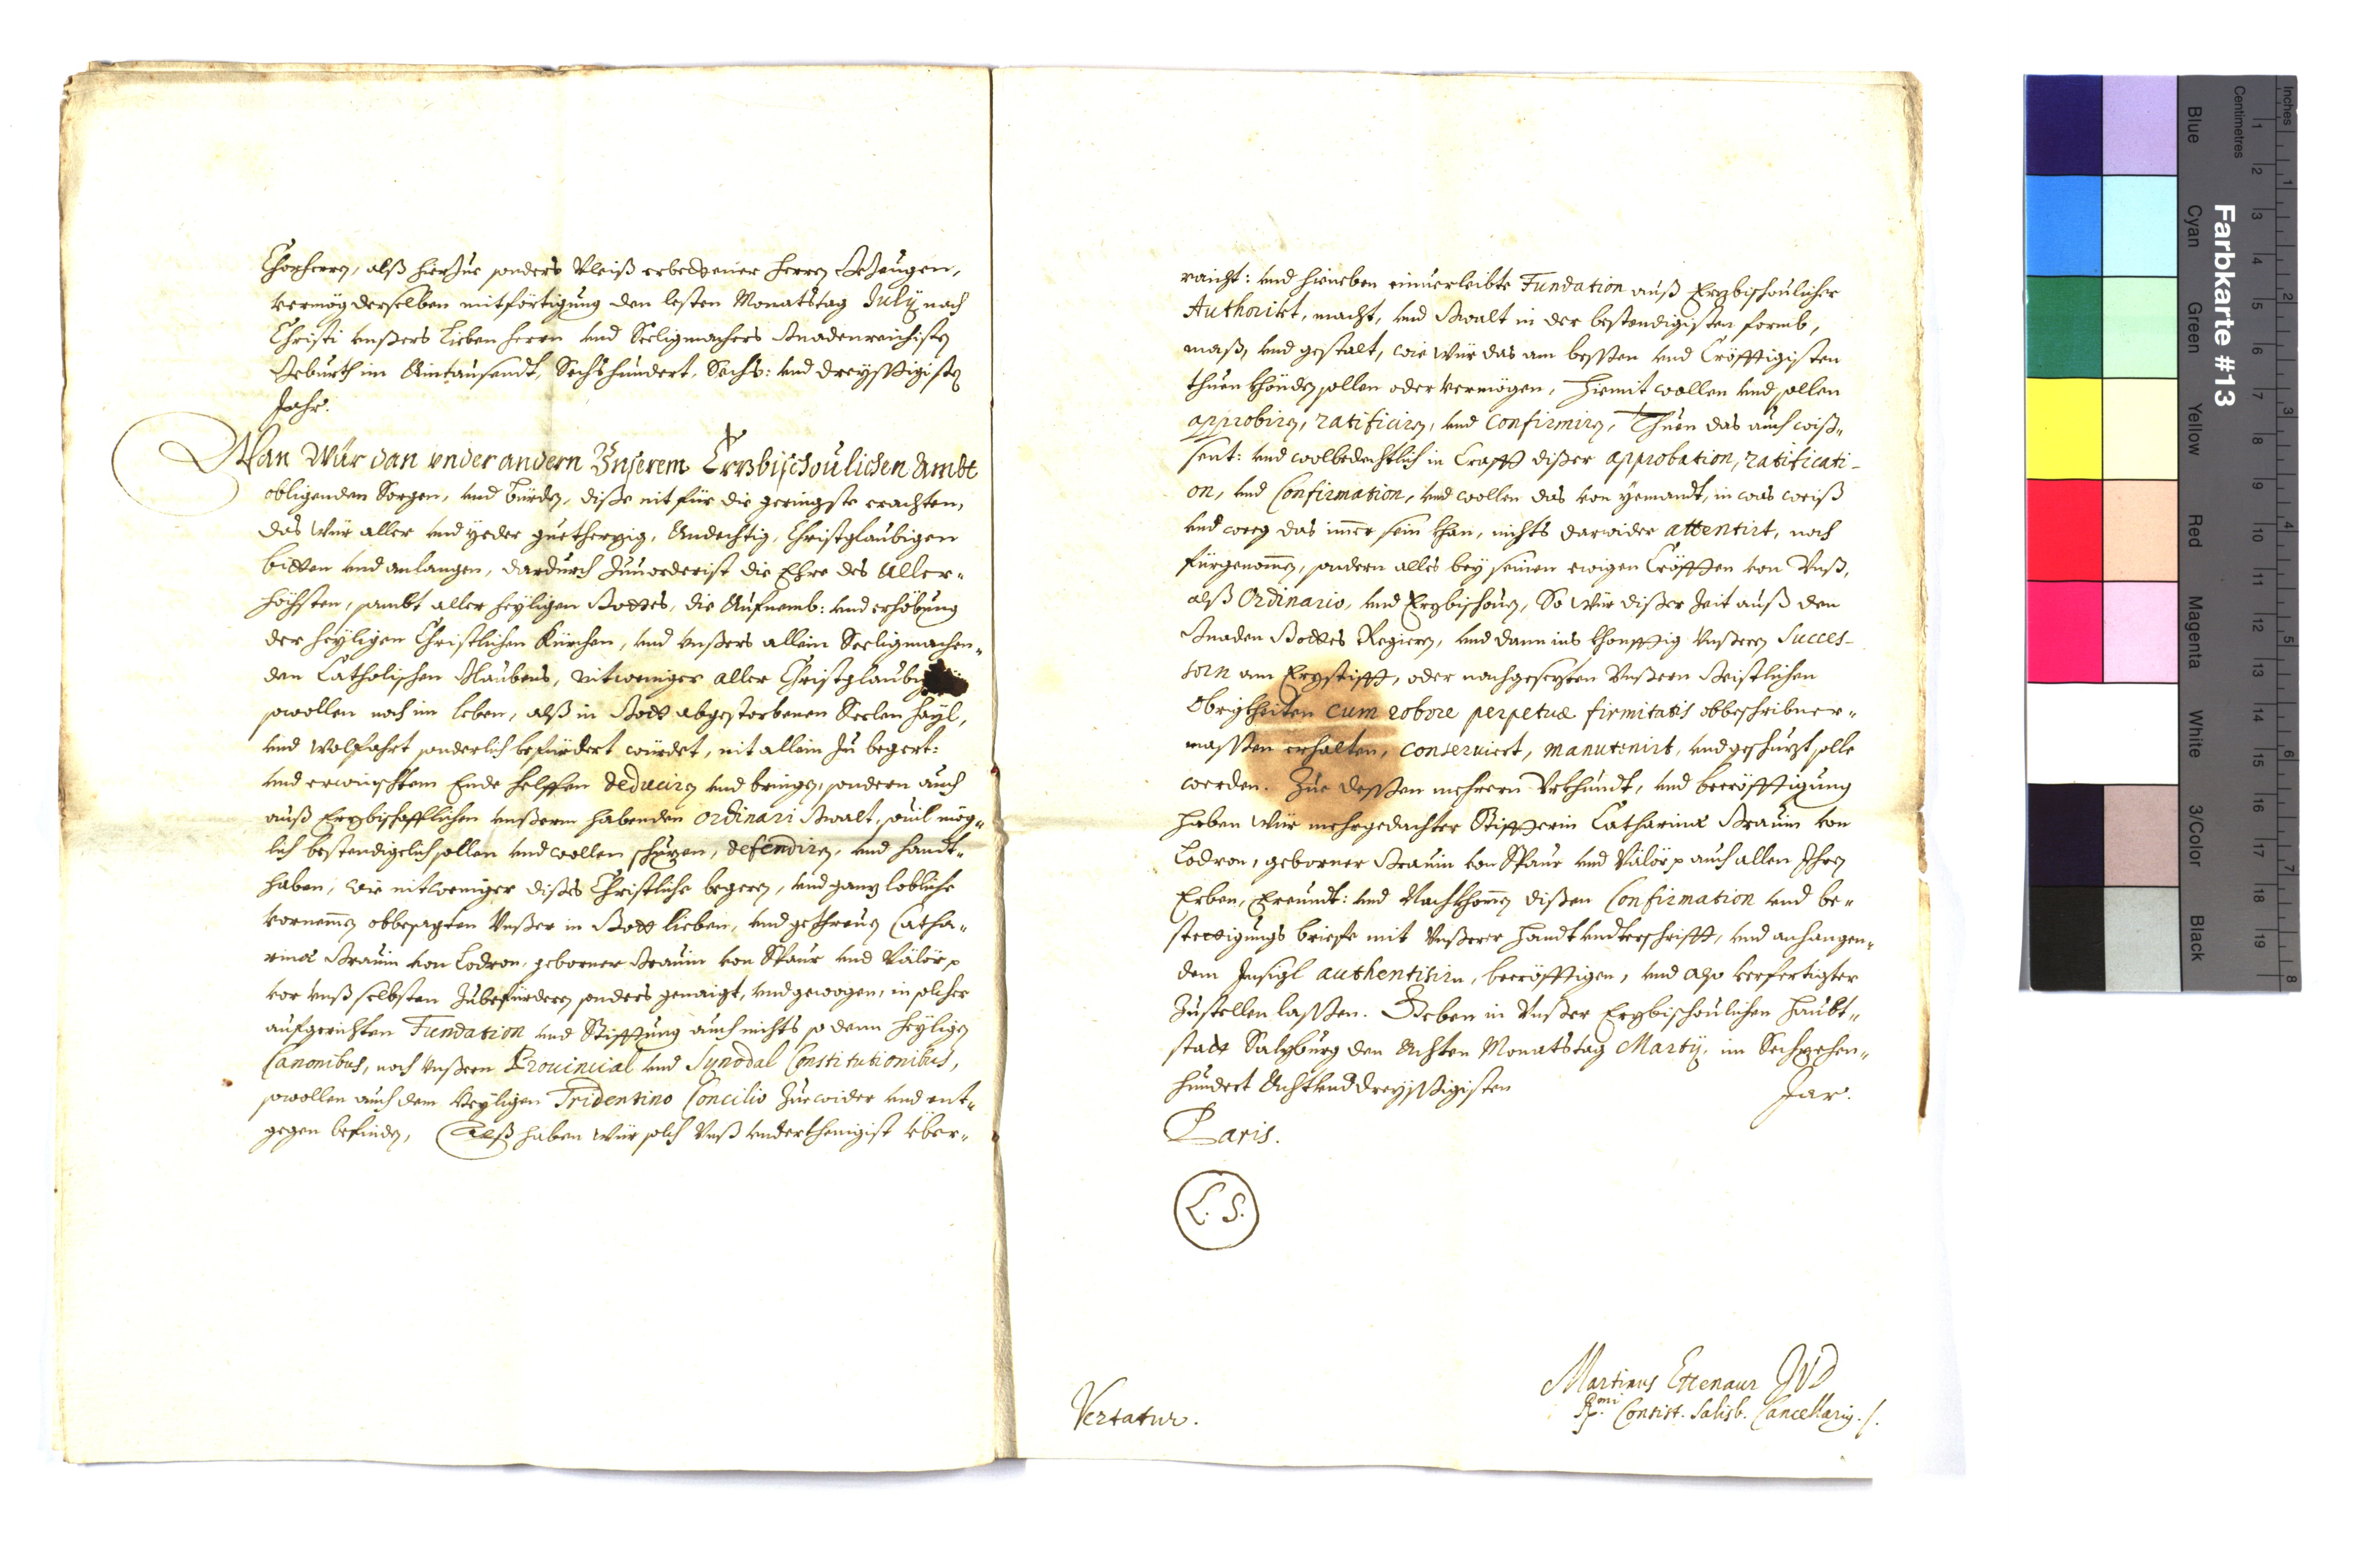 Chorherrn, alß hierzue sonders Vleiß erbedtener Herrn Gezeugen,
vermög derselben mitförtigung den lesten Monatstag July nach
Christi unßers lieben herrn und Seeligmachers Gnadenreichisten
Geburth im Aintausendt, Sechshundert, Sechs: und dreyssigisten
Jahr.
Wan Wür dan vnder andern Vnserem Ertzbischoulichen Ambt
obligenden Sorgen, und bürden, diße nit für die geringste erachten,
das Wür aller und yeder guethertzig, Andechtig, Christglaubigen
bitten und anlangen, dardurch zuuorderist die Ehre des Aller-
höchsten, sambt aller heyligen Gottes, die Aufnemb: und erhöbung
der heyligen Christlichen Kürchen, und unßers allein Seeligmachen-
den Catholischen Glaubens, nitweniger aller Christglaubig
sowollen noch im leben, alß in Gott abgestorbenen Seelen hayl,
und Wolfahrt sonderlich befürdert würdet, nit allein zu begert:
und erwünschtem Ende helffen deducirn und bringen, sondern auch
auß Ertzbischofflichen unßerm habenden ordinari Gwalt, souil mög-
lich bestendigelich sollen und wollen schutzen, defendirn, und handt-
haben, Wie nitweniger dißes Christliche begern, und gantz lobliche
vornemen obbesagten Vnßer in Gott lieben, und gethreuen Catha-
rina Grauin von Lodron, geborner Grauin von Spaur und Välör p
vor unß selbsten zubefürdern sonders genaigt, und gewogen, in solcher
aufgerichten Fundation und Stifftung auch nichts so denn heyligen
Canonibus, noch unßern Prouincial und Synodal Constitutionibus,
sowollen auch dem Heyligen Tridentino Concilio zuewider und ent-
gegen befinden, Alß haben Wür solch Vnß underthenigist über-
raicht: und hieneben einuerleibte Fundation auß Ertzbischoulicher
Authoritet, macht, und Gwalt in der bestendigisten formb,
maß, und gestalt, wie Wür das am bessten und Cröfftigisten
thuen khönden sollen oder vermögen, hiemit wollen und sollen
approbirn, ratificirn, und Confirmirn, Thuen das auch wiß-
sent: und wolbedechtlich in Crafft dißer approbation, ratificati-
on, und Confirmation, und wollen das von yemandt, in was weiß
und weeg das imer sein khan, nichts darwider attentirt, noch
fürgenomen, sondern alles bey seinen ewigen Cröfften von Vnß,
alß Ordinario, und Ertzbischouen, So Wür dißer Zeit auß den
Gnaden Gottes Regiern, und dann ins khonfftig Vnßeren Succes-
sorn am Ertzstifft, oder nachgesetzten Vnßern Geistlichen
Obrigkheiten cum robore perpetuæ firmitatis obbeschribner-
massen erhalten, conseruiert, manutenirt, und geschützt solle
werden. Zue dessen mehrern Vrkhundt, und becröfftigung
haben Wür mehrgedachter Stiffterin Catharina Grauin von
Lodron, geborner Grauin von Spaur und Välör p auch allen Ihren
Erben, Freundt: und Nachkhomen dißen Confirmation und be-
stettigungs brieffe mit Vnßerer handt undterschrifft, und anhangen-
dem Insigl authentisirn, becröfftigen, und also verfertigter
zustellen lassen. Geben in Vnßer Ertzbischoulichen Haubt-
statt Saltzburg den Achten Monatstag Marty, im Sechzehen-
hundert Acht und dreyssigisten Jar.
Paris.
L. S.
Vertatur.
Martinus Ettenaur JVD
Rmi Consist. Salisb. Cancellarig. s.
Farbkarte #13
Inches
Centimetres
1 2 3 4 5 6 7 8 9 10 11 12 13 14 15 16 17 18 19
1 2 3 4 5 6 7 8
Blue Cyan Green Yellow Red Magenta White 3/Color Black